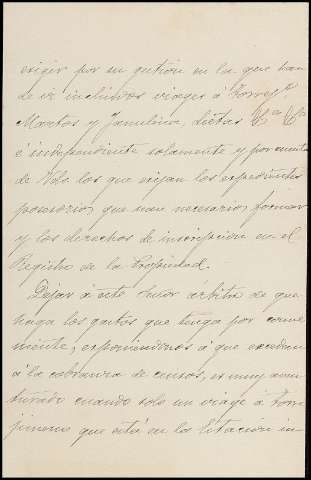 exigir por su gestión en la que han
de ir incluidos viages á Torregº
Martos y Jamilena, dietas &ª &ª
é independiente solamente y por cuenta
de Vds. los que exijan los expedientes
posesorios que sean necesarios formar
y los derechos de inscripción en el
Registro de la Propiedad.
Dejar á este Señor árbitro de que
haga los gastos que tenga por conve
niente, exponiendonos á que excedan
á la cobranza de censos, es muy aven
turado cuando solo un viage á Torre
jimeno que está en la Estación in-